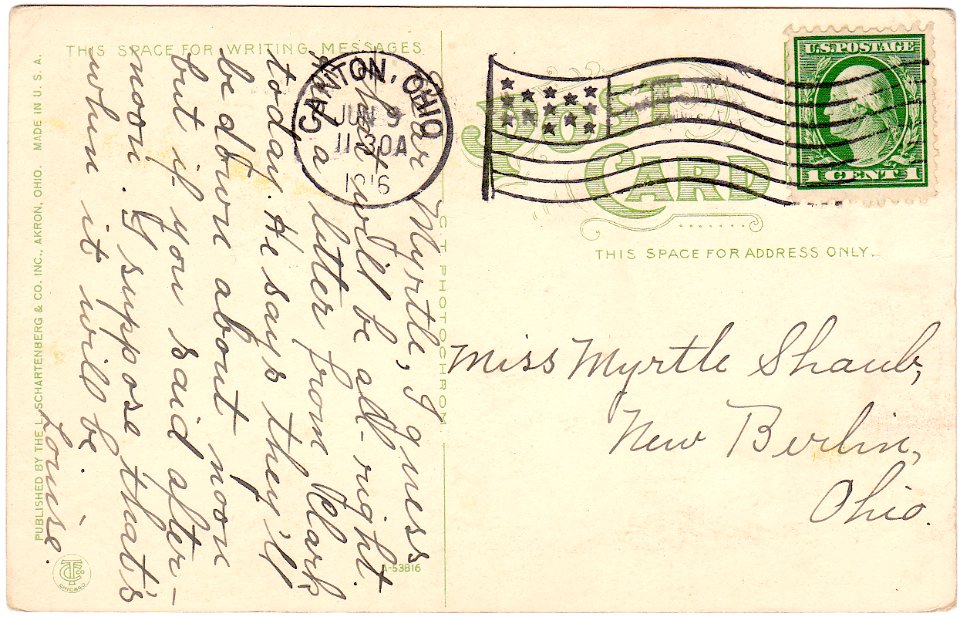 THIS SPACE FOR WRITING MESSAGES
Dear Myrtle, I guess
that will be all-right.
a letter from Clark
today. He says they'll
be down about noon
but if you said after-
noon. I suppose that's
when it will be.
Louise.
PUBLISHED BY THE L. SCHARTENBERG & CO. INC., AKRON, OHIO. MADE IN U. S. A.
CHICAGO
A-53816
C T PHOTOCHROM
CANTON, OHIO
JUN 9
11-30A
1916
POST
CARD
U.S. POSTAGE
1 CENT 1
THIS SPACE FOR ADDRESS ONLY.
Miss Myrtle Shaub,
New Berlin,
Ohio.